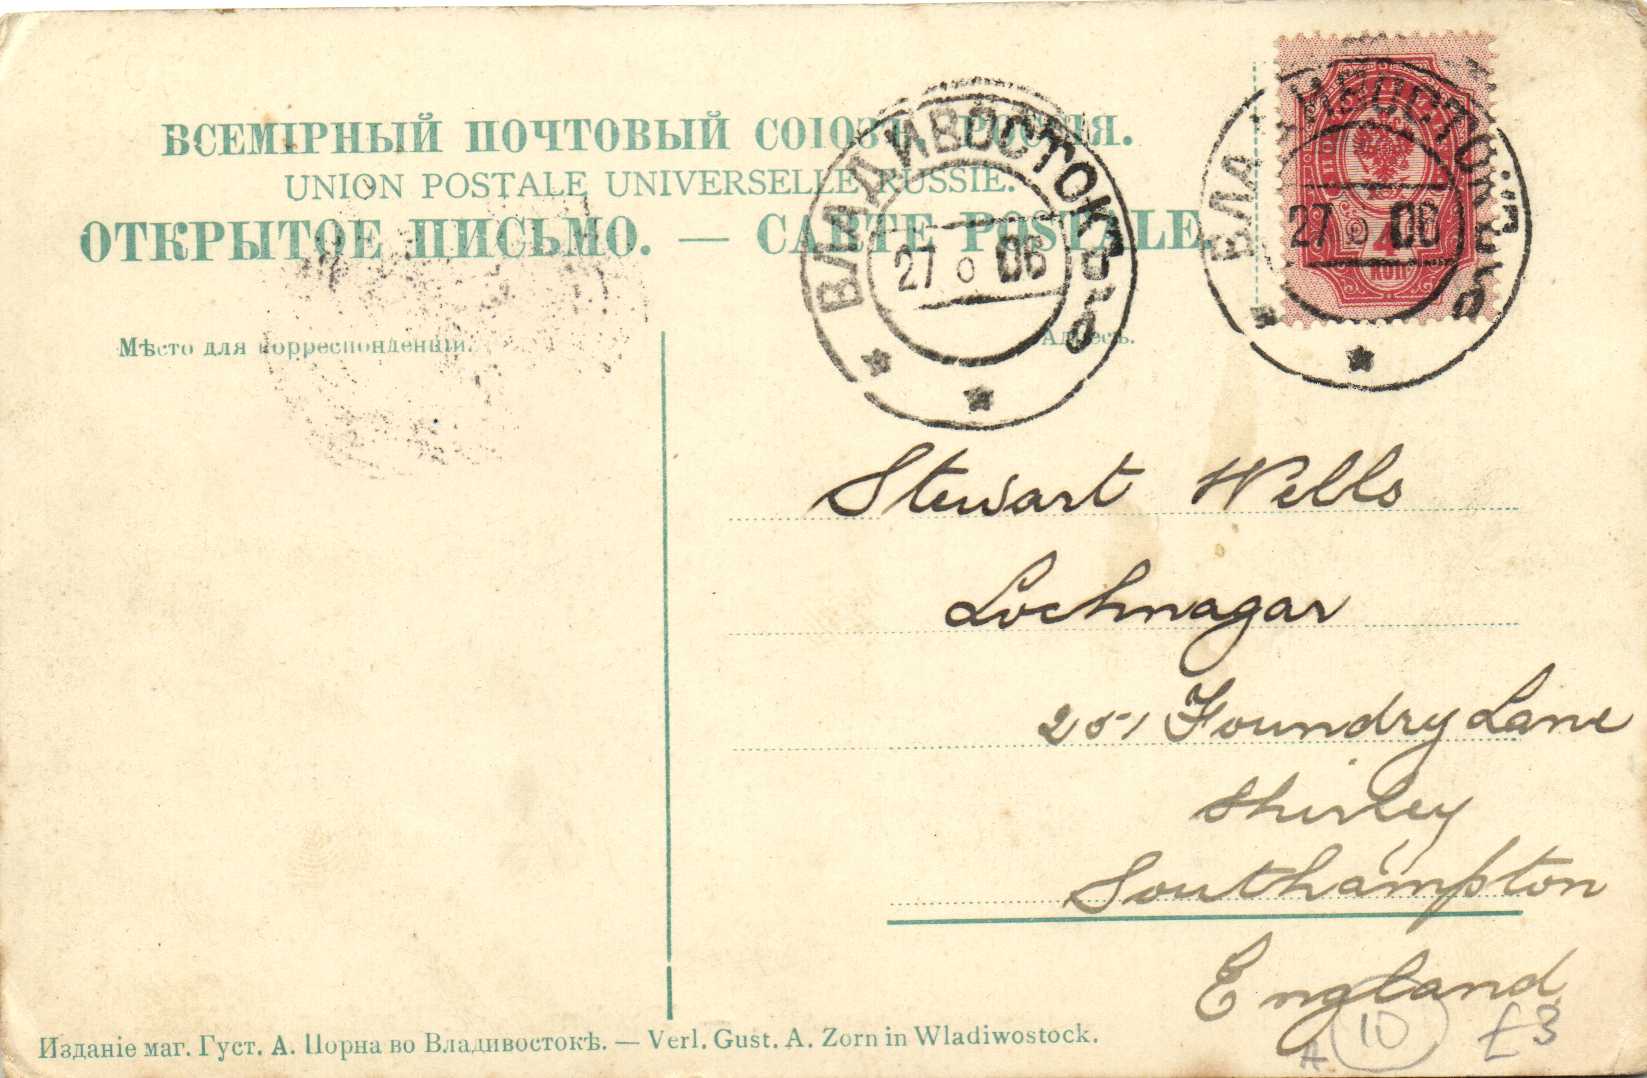 ВСЕМІРНЫЙ ПОЧТОВЫЙ СОЮЗЪ. РОССІЯ.
UNION POSTALE UNIVERSELLE RUSSIE.
ОТКРЫТОЕ ПИСЬМО. — CARTE POSTALE
Мѣсто для корреспонденціи.
Адресъ.
ВЛАДИВОСТОКЪ
27 06
ВЛАДИВОСТОКЪ
27 06
4
КОП
Stewart Wells
Lochnagar
251 Foundry Lane
Shirley
Southampton
England
A 10 £3
Изданіе маг. Густ. А. Цорна во Владивостокѣ. — Verl. Gust. A. Zorn in Wladiwostock.